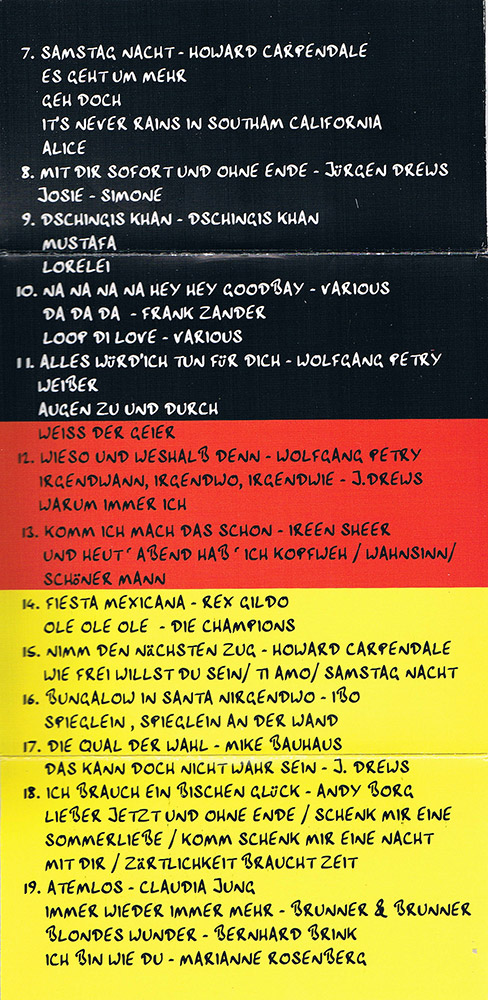 7. SAMSTAG NACHT - HOWARD CARPENDALE
ES GEHT UM MEHR
GEH DOCH
IT'S NEVER RAINS IN SOUTHAM CALIFORNIA
ALICE
8. MIT DIR SOFORT UND OHNE ENDE - JÜRGEN DREWS
JOSIE - SIMONE
9. DSCHINGIS KHAN - DSCHINGIS KHAN
MUSTAFA
LORELEI
10. NA NA NA NA HEY HEY GOODBAY - VARIOUS
DA DA DA - FRANK ZANDER
LOOP DI LOVE - VARIOUS
11. ALLES WÜRD'ICH TUN FÜR DICH - WOLFGANG PETRY
WEIBER
AUGEN ZU UND DURCH
WEISS DER GEIER
12. WIESO UND WESHALB DENN - WOLFGANG PETRY
IRGENDWANN, IRGENDWO, IRGENDWIE - J.DREWS
WARUM IMMER ICH
13. KOMM ICH MACH DAS SCHON - IREEN SHEER
UND HEUT´ ABEND HAB ´ICH KOPFWEH / WAHNSINN/
SCHÖNER MANN
14. FIESTA MEXICANA - REX GILDO
OLE OLE OLE - DIE CHAMPIONS
15. NIMM DEN NÄCHSTEN ZUG - HOWARD CARPENDALE
WIE FREI WILLST DU SEIN/ TI AMO/ SAMSTAG NACHT
16. BUNGALOW IN SANTA NIRGENDWO - IBO
SPIEGLEIN , SPIEGLEIN AN DER WAND
17. DIE QUAL DER WAHL - MIKE BAUHAUS
DAS KANN DOCH NICHT WAHR SEIN - J. DREWS
18. ICH BRAUCH EIN BISCHEN GLÜCK - ANDY BORG
LIEBER JETZT UND OHNE ENDE / SCHENK MIR EINE
SOMMERLIEBE / KOMM SCHENK MIR EINE NACHT
MIT DIR / ZÄRTLICHKEIT BRAUCHT ZEIT
19. ATEMLOS - CLAUDIA JUNG
IMMER WIEDER IMMER MEHR - BRUNNER & BRUNNER
BLONDES WUNDER - BERNHARD BRINK
ICH BIN WIE DU - MARIANNE ROSENBERG